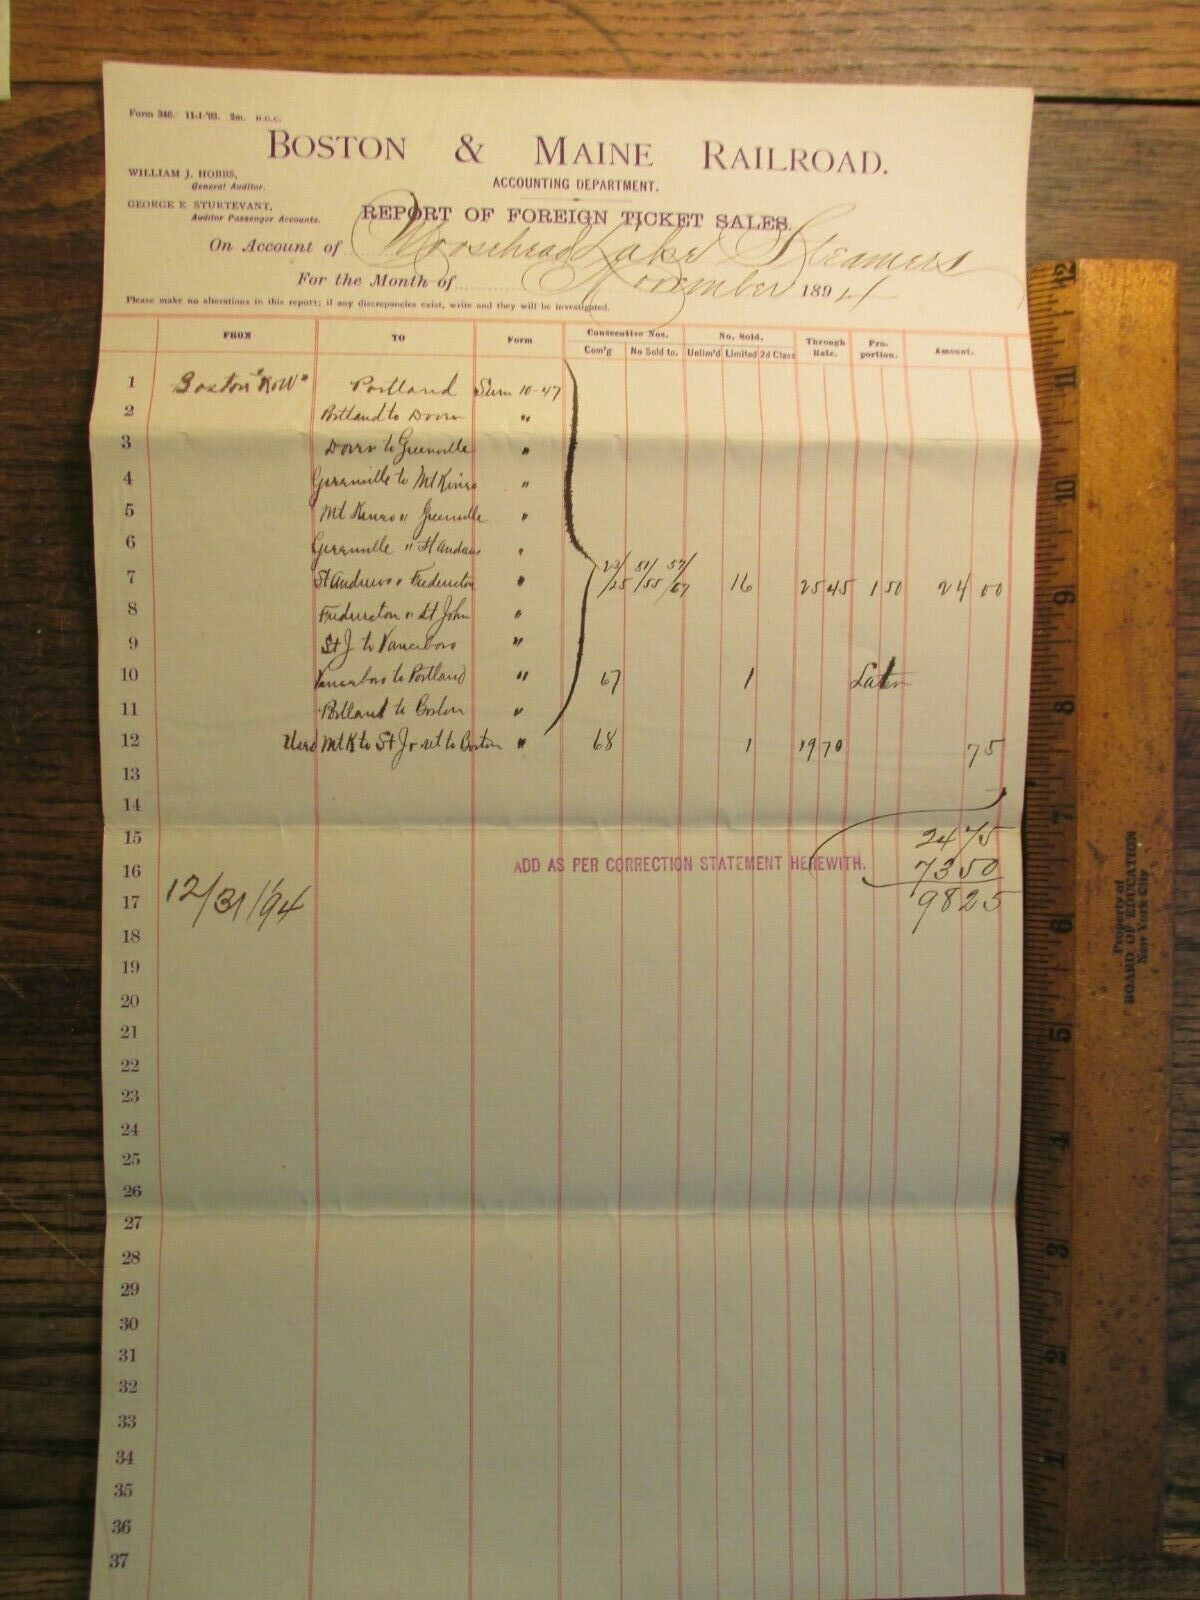 Form 346. 11-1-'93. 2m. H.G.C.
BOSTON & MAINE RAILROAD.
WILLIAM J. HOBBS,
General Auditor.
ACCOUNTING DEPARTMENT.
GEORGE E. STURTEVANT,
Auditor Passenger Accounts.
REPORT OF FOREIGN TICKET SALES.
On Account of Moosehead Lake Steamers
For the Month of November 1894
Please make no alterations in this report; if any discrepancies exist, write and they will be investigated.
FROM TO Form Consecutive Nos. No. Sold. Through Rate. Pro-portion. Amount.
Com'g No Sold to. Unlim'd Limited 2d Class
1 Boston Portland Sum 10-47
2 Portland to Dover "
3 Dover to Greenville "
4 Greenville to Mt Kineo "
5 Mt Kineo " Greenville "
6 Greenville " St Andrews "
7 St Andrews " Fredericton " /25 51/55 57/67 16 25 45 1 50 24 00
8 Fredericton " St John "
9 St J to Vanceboro "
10 Vanceboro to Portland " 67 1
11 Portland to Boston "
12 Used Mt K to St J & ret to Boston " 68 1 19 70 75
13
14
15 24 75
16 ADD AS PER CORRECTION STATEMENT HEREWITH. 73 50
17 12/31/94 98 25
18
19
20
21
22
23
24
25
26
27
28
29
30
31
32
33
34
35
36
37
12
11
10
9
8
7
6
5
4
3
2
1
Property of
BOARD OF EDUCATION
New York City